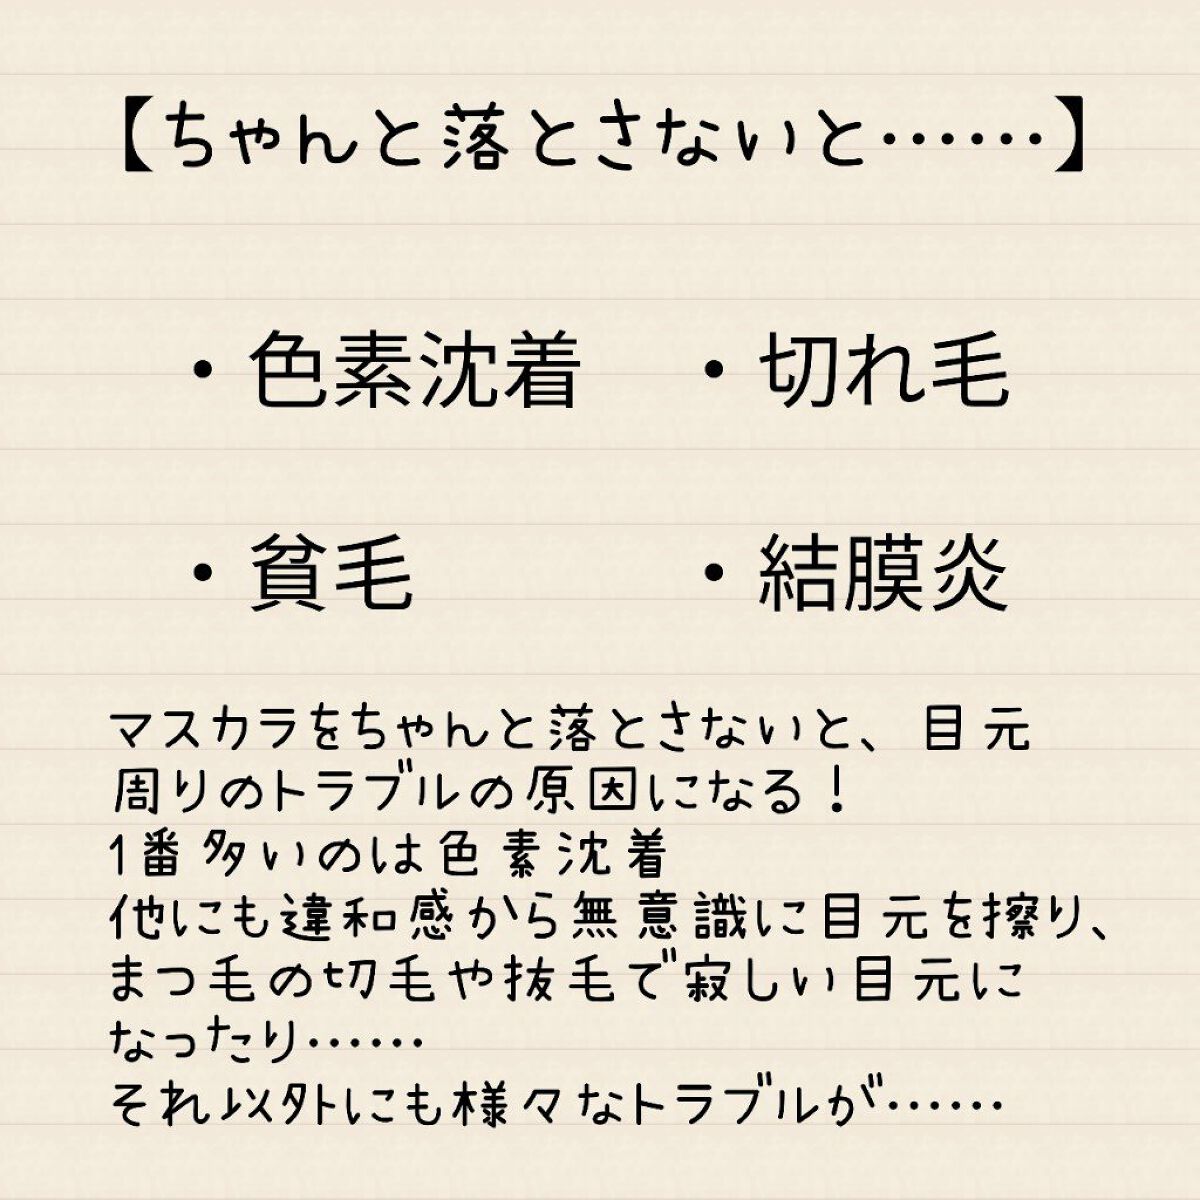 【ちゃんと落とさないと……】
・色素沈着　・切れ毛
・貧毛　・結膜炎
マスカラをちゃんと落とさないと、目元
周りのトラブルの原因になる！
1番多いのは色素沈着
他にも違和感から無意識に目元を擦り、
まつ毛の切毛や抜毛で寂しい目元に
なったり……
それ以外にも様々なトラブルが……